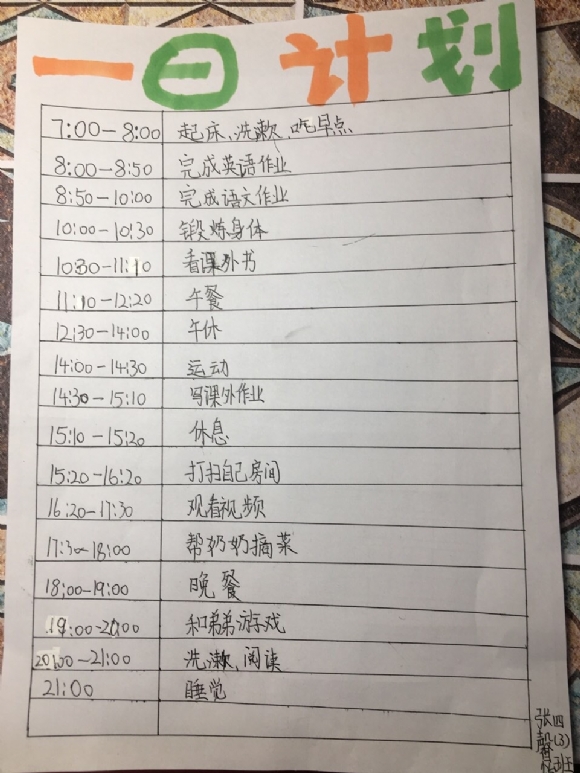 一日计划
7:00-8:00 起床、洗漱、吃早点
8:00-8:50 完成英语作业
8:50-10:00 完成语文作业
10:00-10:30 锻炼身体
10:30-11:10 看课外书
11:10-12:20 午餐
12:30-14:00 午休
14:00-14:30 运动
14:30-15:10 写课外作业
15:10-15:20 休息
15:20-16:20 打扫自己房间
16:20-17:30 观看视频
17:3-18:00 帮奶奶摘菜
18:00-19:00 晚餐
19:00-20:00 和弟弟游戏
20:00-21:00 洗漱、阅读
21:00 睡觉
四(3)班
张馨